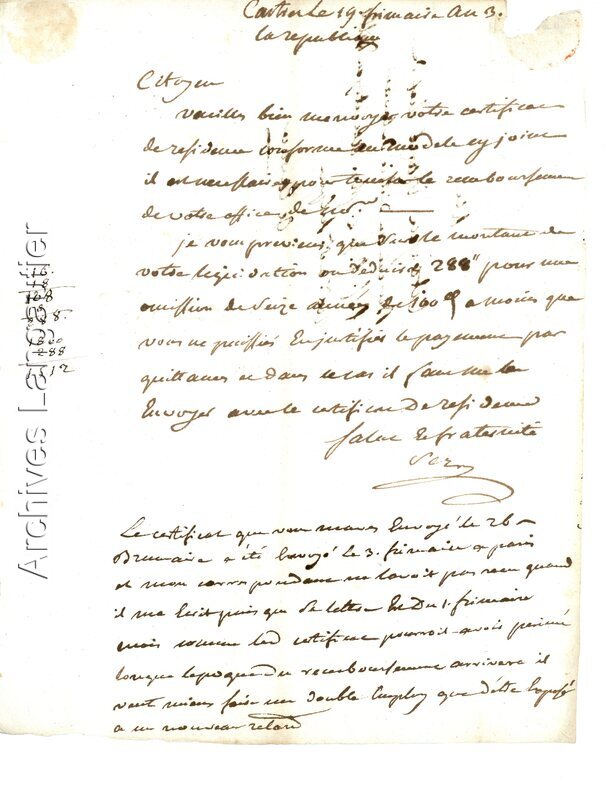 Castres Le 19 frimaire An 3.
la republique
Citoyen
veuilles bien m'envoyer votre certificat
de residence conforme au modele cy joint
il est necessaire pour toucher le remboursement
de votre office de
je vous previens que sur le montant de
votre liquidation on déduira 288" pour une
omission de seize années de 100e a moins que
vous ne puissiés En justifier le payement par
quittances et dans ce cas il faut me les
Envoyer avec le certificat De residence
salut et fraternité
Le certificat que vous maves Envoyé le 26
Brumaire a été Envoyé le 3. frimaire a paris
et mon correspondant ne lavoit pas recu quand
il ma Ecrit puis que sa lettre Est Du 1. frimaire
mais comme led certificat pourroit avoir perimé
lorsque lepoque du remboursement arrivera il
vaut mieux faire un double Employ que dêtre Exposé
a un nouveau retard
288
Archives Lanauttier